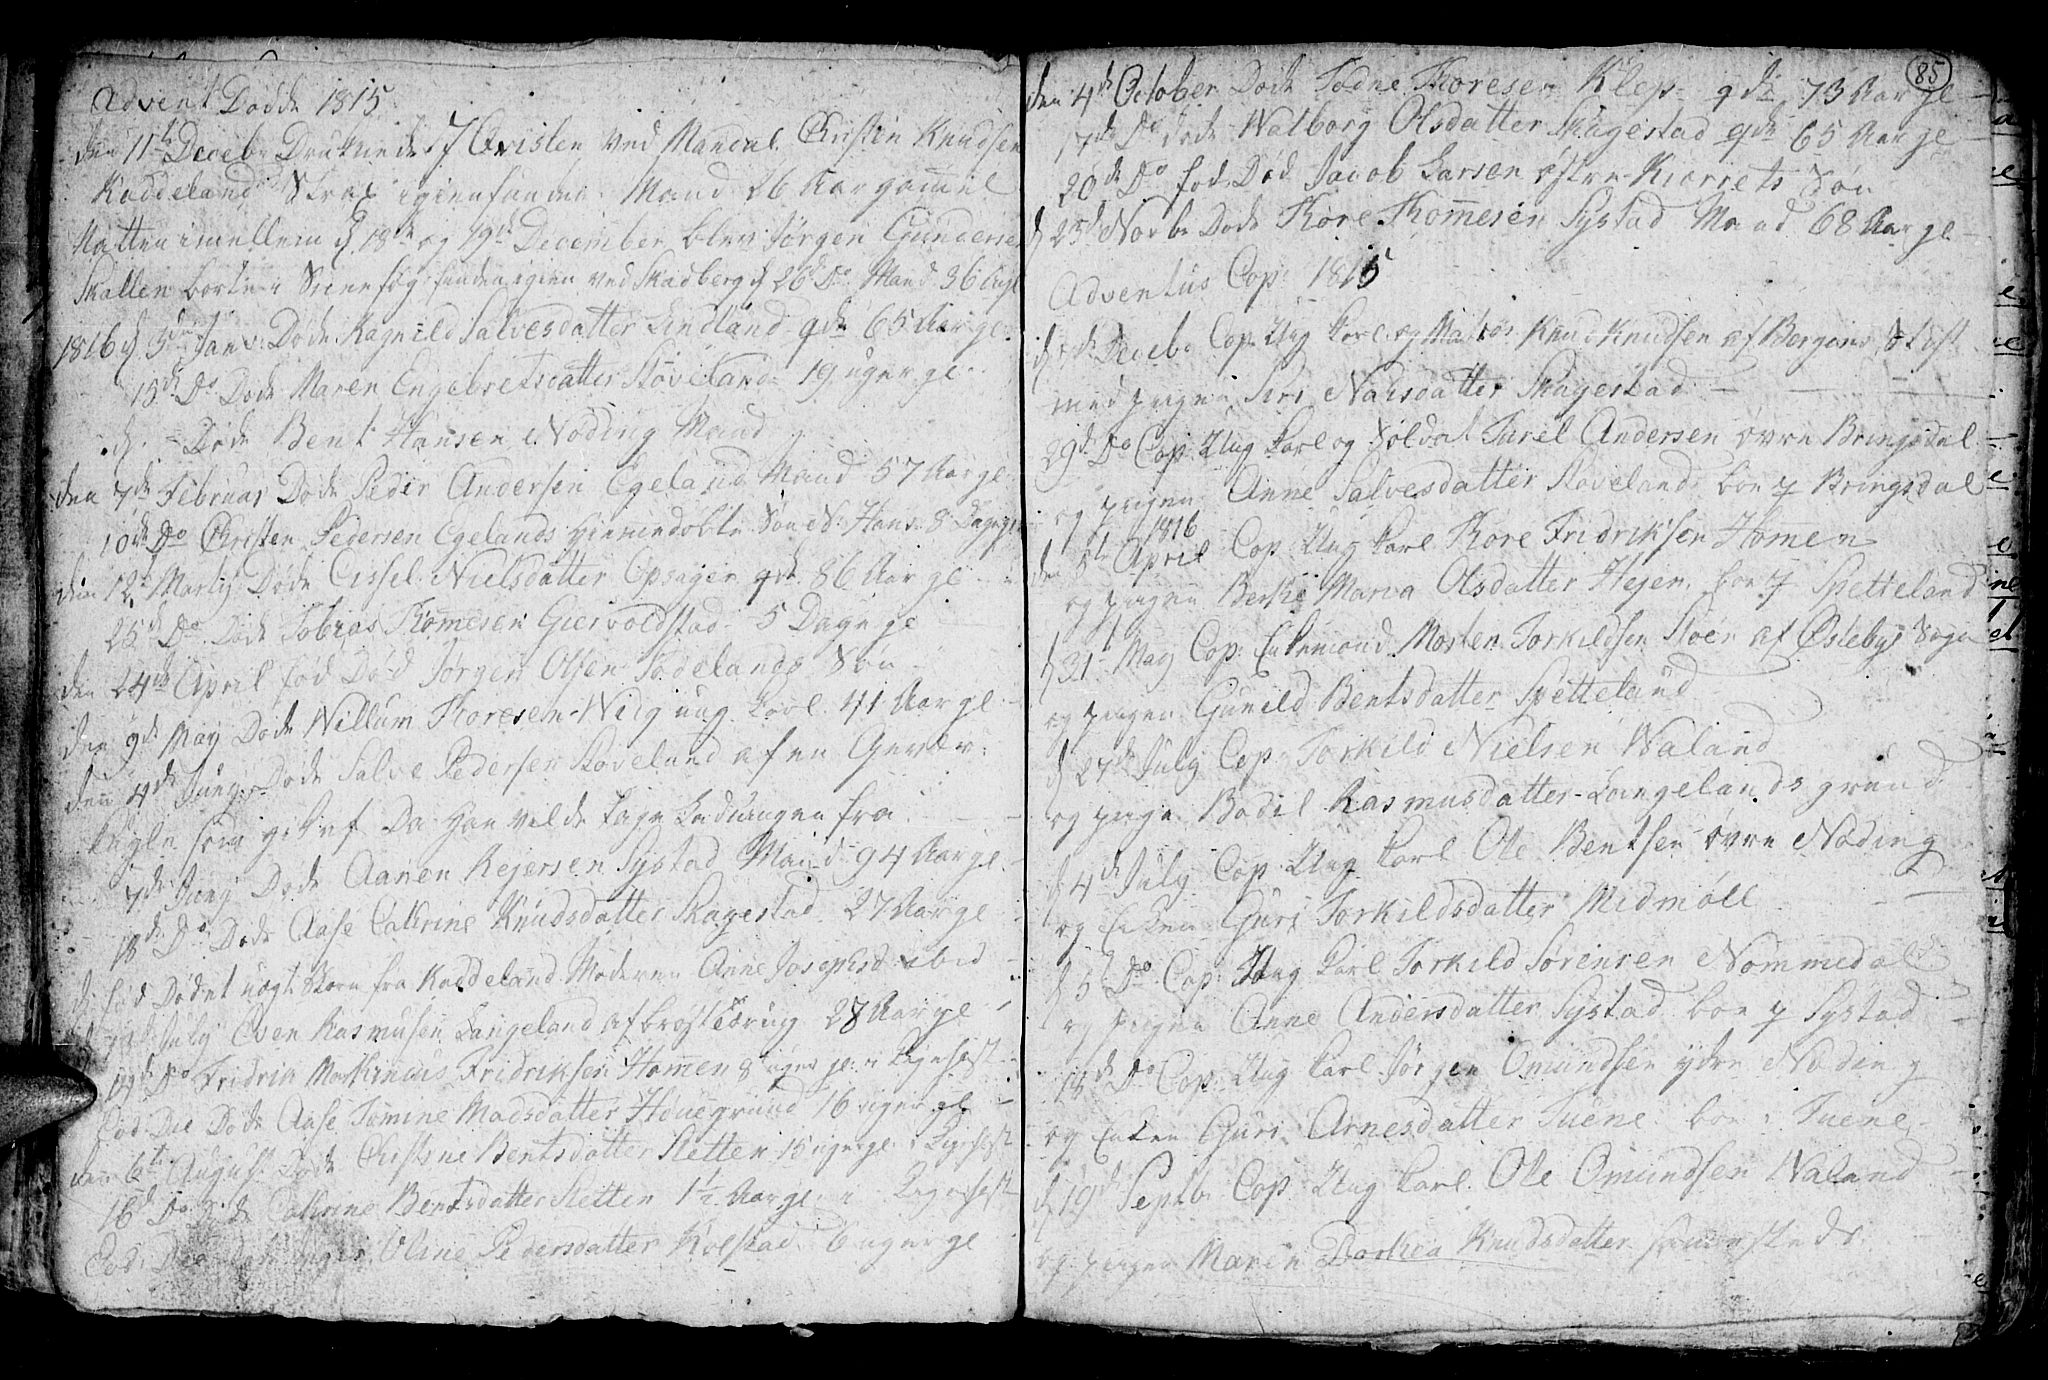 Advent Døde 1815
den 11te Decebr Druknede i Qvislen ved Mandal Christen Knudsen
Kaddeland Strax igienfunden Mand 26 Aar gammel
Natten imellem d 18de og 19de December blev Jørgen Gundersen
Skallen borte i Sneefog funden igien ved Skadberg d 26d Do Mand 36 Aar gl
1816 d 5te Janv. Døde Ragnild Salvesdatter Lindland gde 65 Aar gl
15de Do Døde Maren Engebretsdatter Støveland 19 uger gl
d. - Døde Bent Hansen Nøding Mand
den 7de Februar Døde Peder Andersen Egeland Mand 57 Aar gl
10de Do Christen Pedersen Egelands hiemmedøbte Søn N. Hans 8 Dage gl
den 12t Martij Døde Cissel Nielsdatter Opsager gde 86 Aar gl
25de Do Døde Tobias Tommesen Giervoldstad 5 Dage gl
den 24de April fød Død Jørgen Olsen Sødelands Søn
den 9de May Døde Willum Thoresen Wiig ung Karl 41 Aar gl
den 4de Junij Døde Salve Pedersen Støveland af en Gevær
kugle som gik af Da han vilde tage Ladningen fra
7de Junij Døde Aanen Rejersen Systad Mand 94 Aar gl
18de Do Døde Aase Cathrine Knudsdatter Skagestad 27 Aar gl
d. fød Død et uægte Barn fra Kaddeland Moderen Anne Josephsd ibid
July Even Rasmusen Langeland af brøstedrug 28 Aar gl
19de Do Fridrik Mathinius Fridriksen Homen 8 uger gl
Eod Die Døde Aase Tomine Madsdatter Hønegrund 16 uger gl
den 6te August Døde Christine Bentsdatter Sletten 15 uger gl
16d Do Døde Cathrine Bentsdatter Sletten 1½ Aar gl
Eod. Die Døde Inger Oline Pedersdatter Kolstad 6 uger gl
85
den 4de October Døde Todne Thoresen Klep gde 73 Aar gl
17de Do døde Walborg Olsdatter Skagestad gde 65 Aar gl
20de Do fød Død Jacob Larsen østre Kiorrets Søn
d 25d Novbr Døde Thore Thommesen Systad Mand 68 Aar gl
Adventus Cop: 1815
Decebr Cop. Ung Karl og Matros Knud Knudsen af Bergens Stift
med pigen Siri Nansdatter Skagestad
29de Do Cop: Ung Karl og Soldat Tarel Andersen øvre Bringsdal
og pigen Anne Salvesdatter Støveland boe p Bringsdal
1816
den 5t April Cop Ung Karl Thore Fridriksen Homen
og pigen Berthe Maria Olsdatter Hejen boe p Spetteland
d 31t May Cop: Enkemand Morten Torkildsen Stoen af Øslebye Sogn
og pigen Gunild Bentsdatter Spetteland
d 27de July Cop: Torkild Nielsen Waland
og pige Bodil Rasmusdatter Langelands grund
d 4de July Cop Ung Karl Ole Bentsen øvre Nøding
og Enken Guri Torkildsdatter Midmøll
d 5t Do Cop: Ung Karl Torkild Sørensen Nommedal
og pigen Anne Andersdatter Systad boe p Systad
18de Do Cop: Ung Karl Jørgen Omundsen ydre Nøding
og Enken Guri Arnesdatter Tuene boe i Tuene
d 19de Septbr Cop Ung Karl Ole Omundsen Waland
og pigen Maren Dorthea Knudsdatter sammesteds